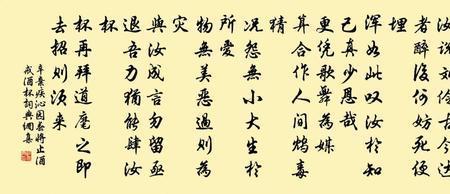 汝說劉伶古今達
者醉後何妨死便
埋
渾如此叹汝於知
己真少恩哉
更凭歌舞為媒
算合作人間鸩毒
猜
况怨無小大生於
所愛
物無美惡過則為
灾
與汝成言勿留亟
退吾力猶能肆汝
杯
杯再拜道麾之即
去招則须来
辛棄疾沁園春將止酒
戒酒杯詞典網集